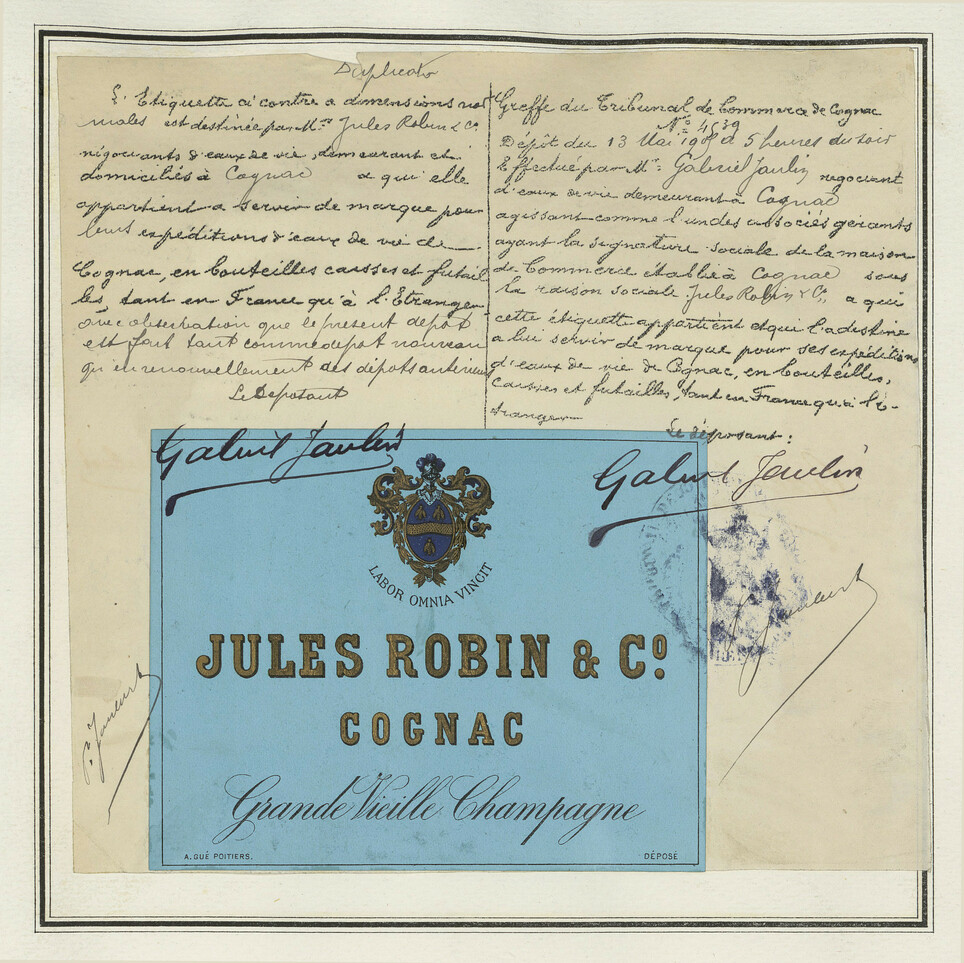 Duplicata
L'Etiquette ci contre a dimensions nor
males est destinée par Mrs Jules Robin & Co
négociants d'eaux de vie, demeurant et
domiciliés à Cognac a qui elle
appartient a servir de marque pour
leurs expéditions d'eaux de vie de
Cognac, en bouteilles caisses et futail
les tant en France qu'à l'Etranger
avec observation que le present depot
est fait tant comme depot nouveau
qu'en renouvellement des dépots anterieurs
Le Deposant
Gabriel Jaulin
Greffe du Tribunal de Commerce de Cognac
No 4539
Dépôt du 13 Mai à 5 heures du soir
Effectué par Mr Gabriel Jaulin negociant
d'eaux de vie demeurant à Cognac
agissant comme l'un des associés gérants
ayant la signature sociale de la maison
de Commerce établie à Cognac sous
la raison sociale Jules Robin & Co, a qui
cette étiquette appartient et qui l'a destine
a lui servir de marque pour ses expéditions
d'eaux de vie de Cognac, en bouteilles,
caisses et futailles, tant en France qu'à l'é-
tranger
Le déposant:
Gabriel Jaulin
LABOR OMNIA VINCIT
JULES ROBIN & Co.
COGNAC
Grande Vieille Champagne
A. GUÉ POITIERS.
DÉPOSÉ